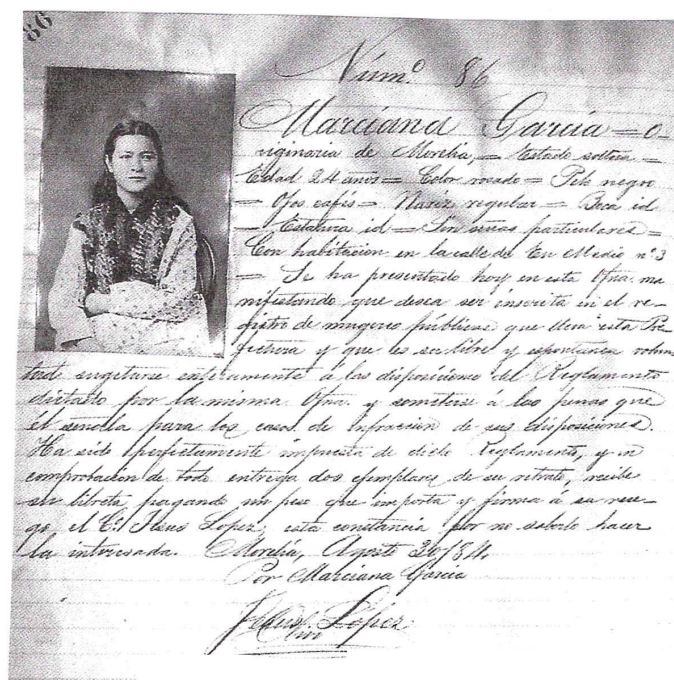 86
Núm.º 86
Marciana García = o-
riginaria de Morelia, = Estado soltera =
Edad 24 años = Color rosado = Pelo negro
= Ojos cafés = Nariz regular = Boca id
= Estatura id = Sin señas particulares =
Con habitacion en la calle de En Medio nº 3
= Se ha presentado hoy en esta Ofna. ma
nifestando que desea ser inscrita en el re-
gistro de mugeres públicas que lleva esta Pre
fectura y que es su libre y espontanea volun
tad sugetarse enteramente á las disposiciones del Reglamento
dictado por la misma Ofna. y someterse á las penas que
él señala para los casos de infraccion de sus disposiciones.
Ha sido perfectamente impuesta de dicho Reglamento, y en
comprobacion de todo entrega dos ejemplares de su retrato, recibe
su libreta pagando un peso que importa y firma á su rue-
go el C. Jesus Lopez; esta constancia por no saberlo hacer
la interesada. Morelia, Agosto 20/84.
Por Marciana Garcia
Jesus Lopez